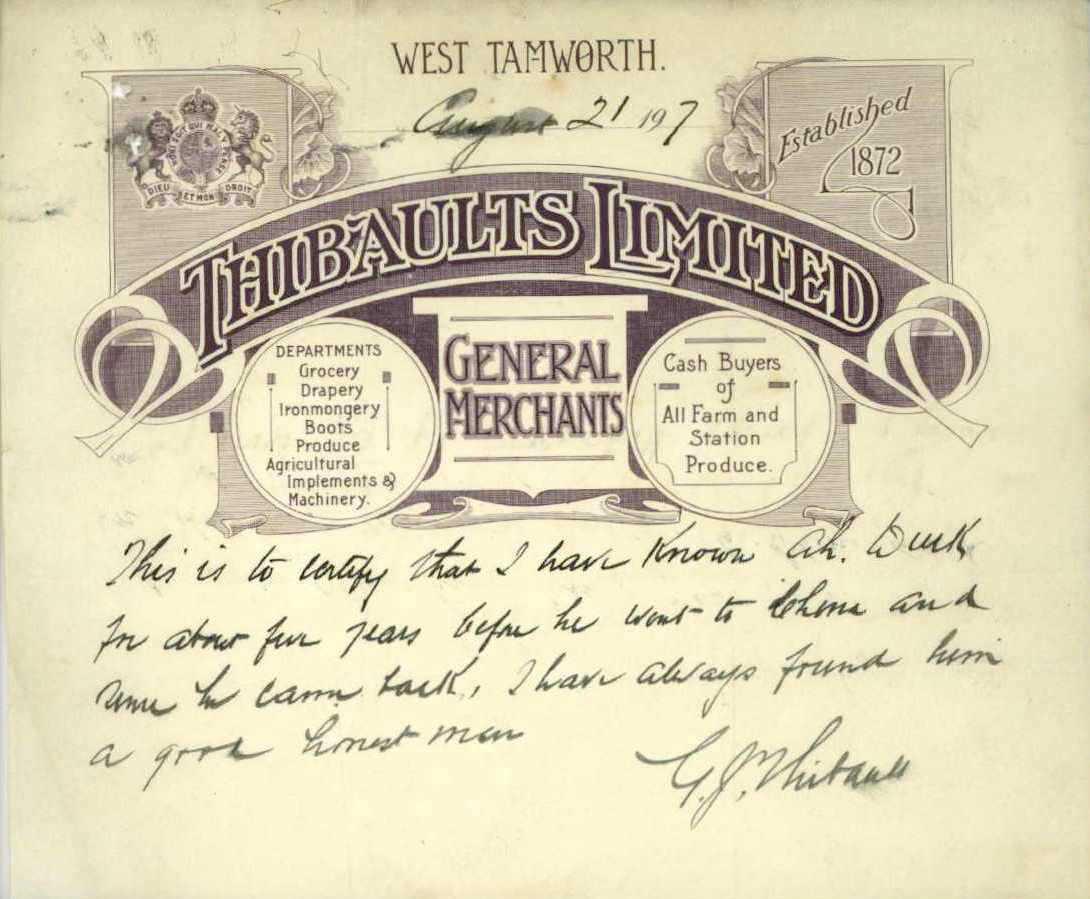 WEST TAMWORTH.
August 21 197
Established
1872
DIEU ET MON DROIT
THIBAULTS LIMITED
GENERAL
MERCHANTS
DEPARTMENTS
Grocery
Drapery
Ironmongery
Boots
Produce
Agricultural
Implements &
Machinery.
Cash Buyers
of
All Farm and
Station
Produce.
This is to certify that I have known Ah. Duck
for about five years before he went to China and
since he came back, I have always found him
a good honest man
G. J. Thibault